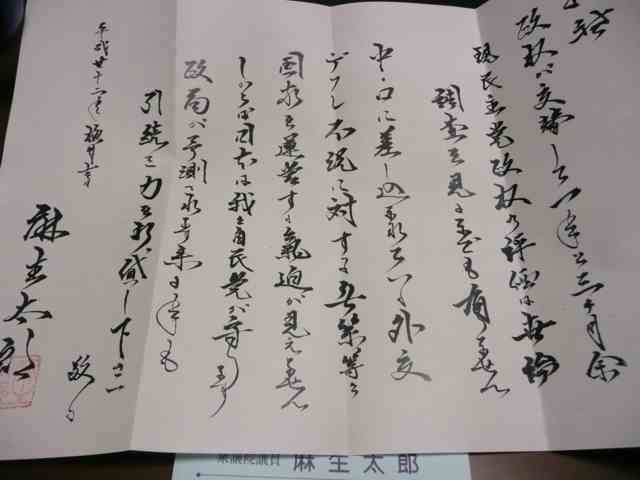 政权が交替して一年と三ヶ月余
現民主党政权の評価は無論
調査を見るまでも有りません
中・ロに差し込まれている外交
デフレ不況に対する無策等々
国家を運営する氣迫が見えません
しからば日本は我自民党が守り
政局が予測される来る年も
引続き力をお貸し下さい
平成廿十二年極月吉日
麻生太郎
衆議院議員 麻生太郎